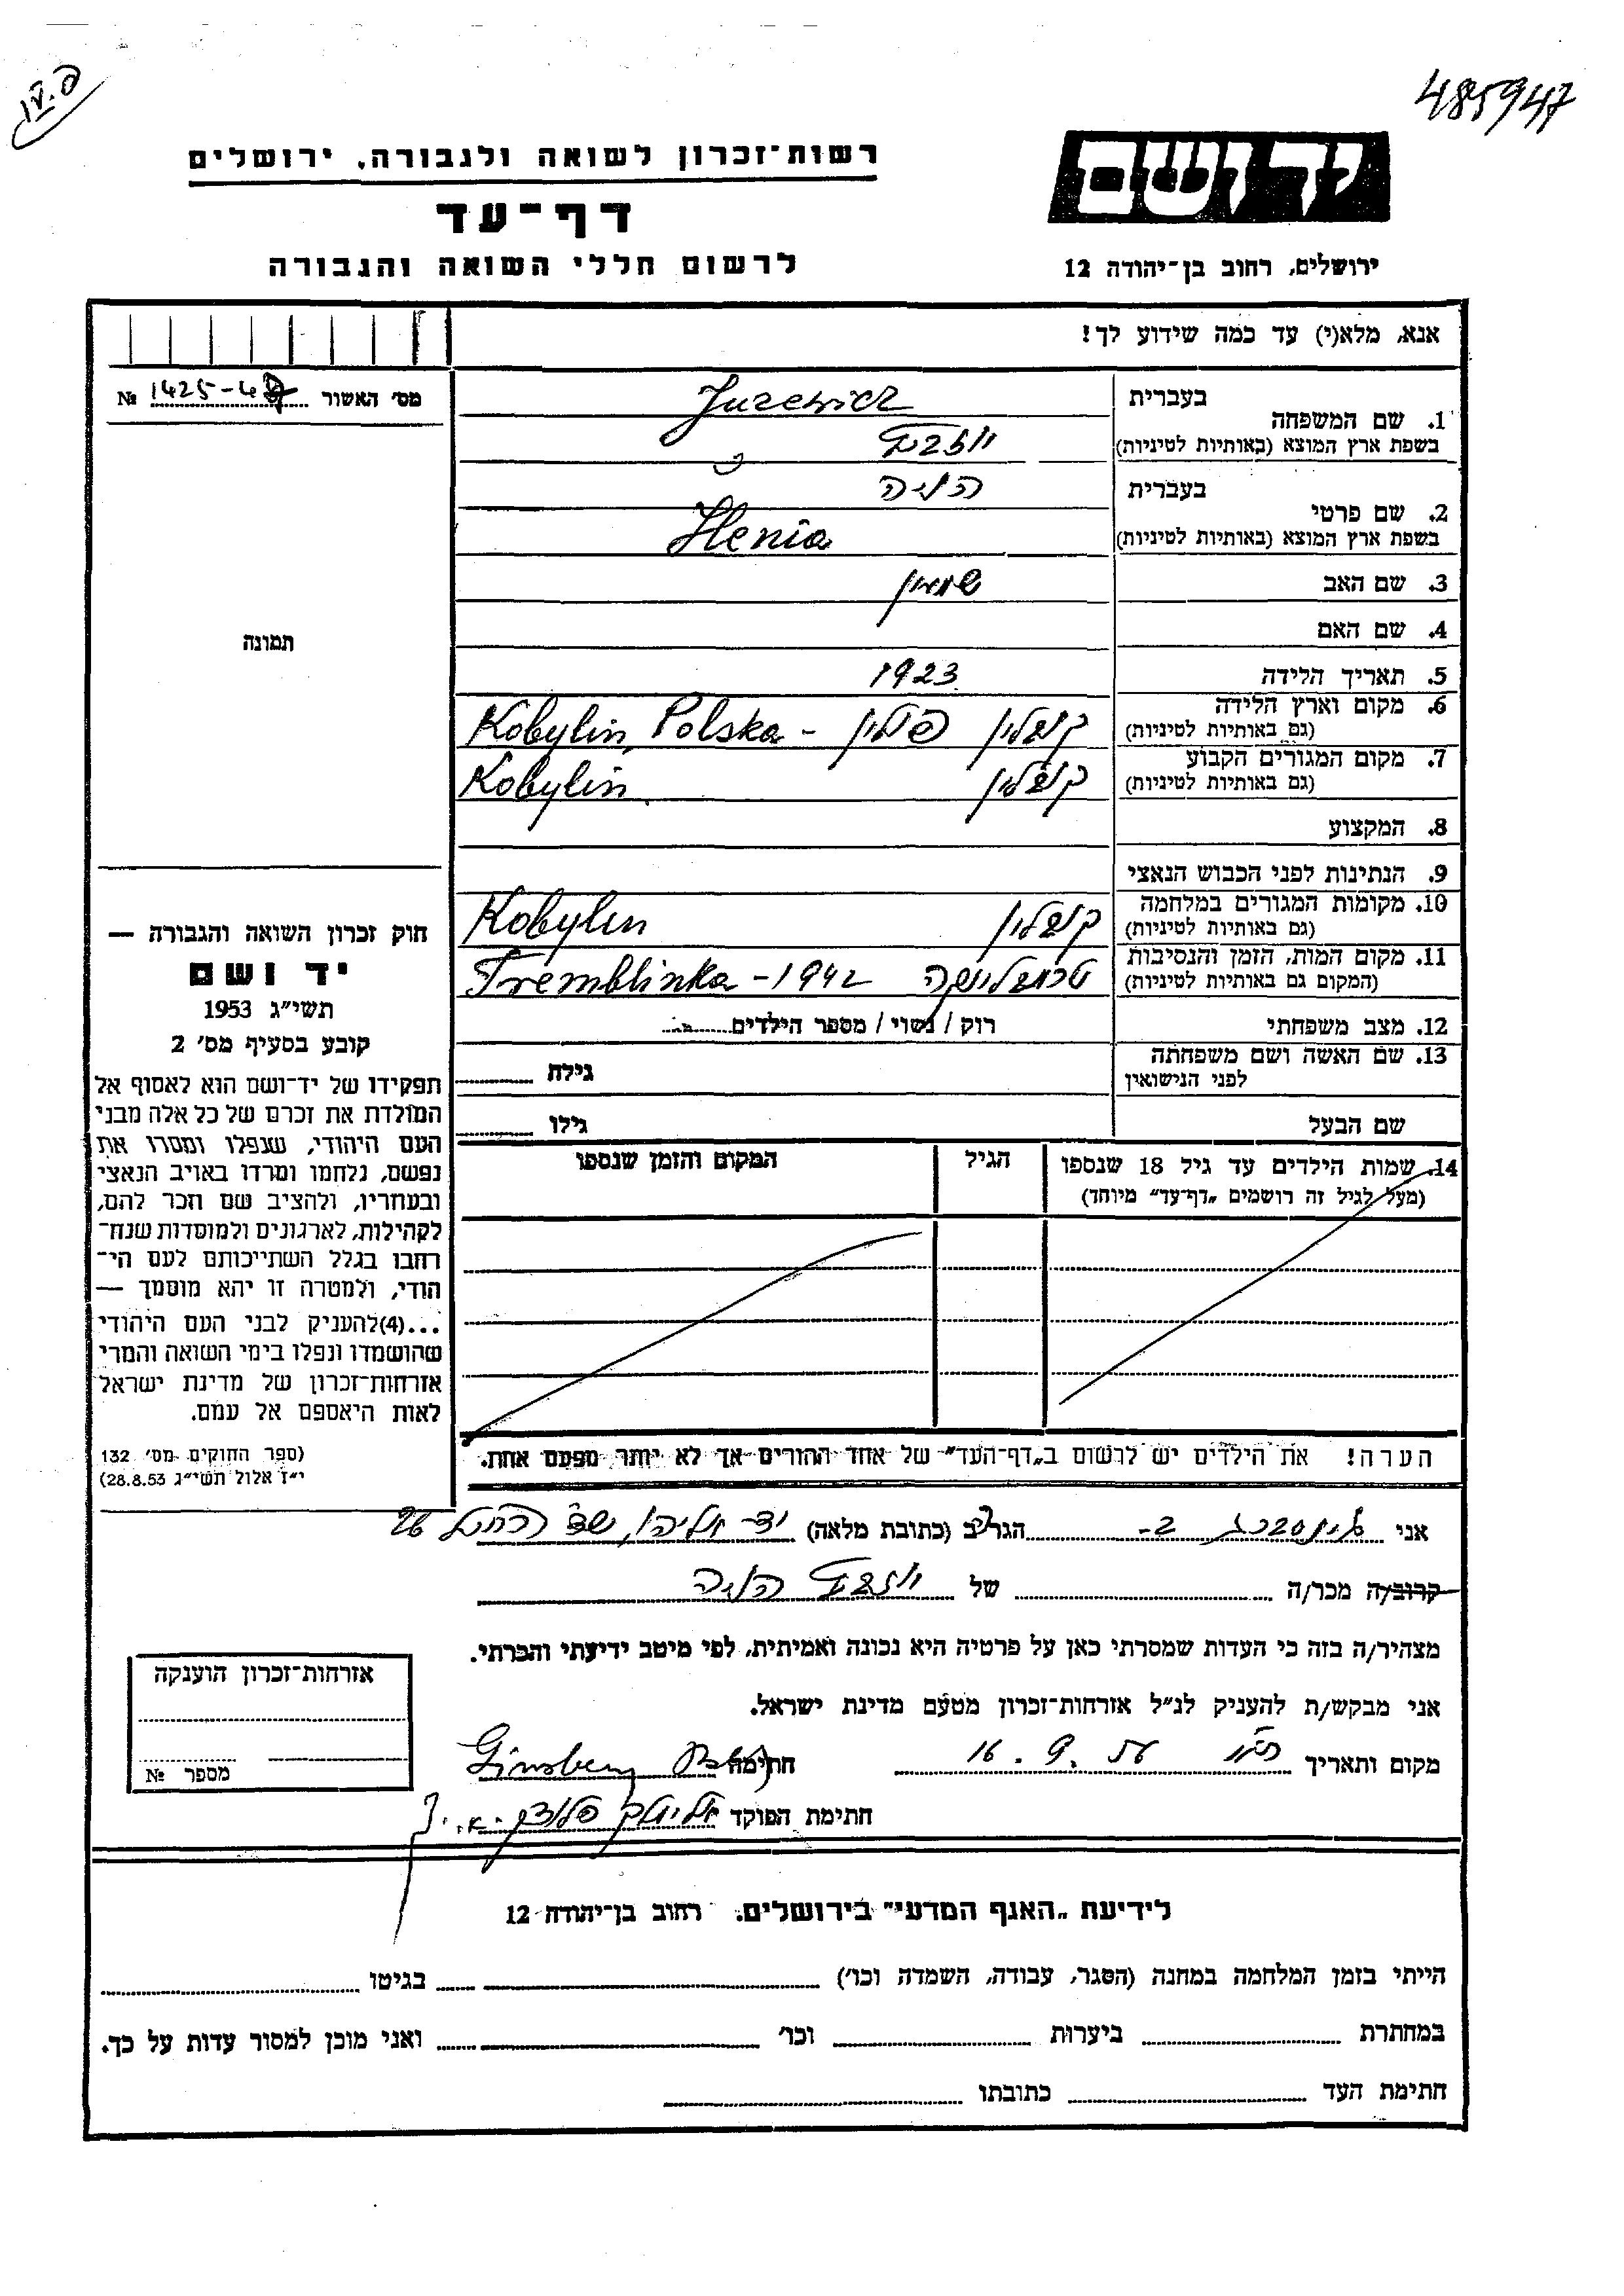 485947
יד ושם
ירושלים, רחוב בן־יהודה 12
רשות־זכרון לשואה ולגבורה, ירושלים
דף־עד
לרשום חללי השואה והגבורה
אנא, מלא(י) עד כמה שידוע לך!
מס׳ האשור № 1425-4
תמונה
חוק זכרון השואה והגבורה —
יד ושם
תשי״ג 1953
קובע בסעיף מס׳ 2
תפקידו של יד־ושם הוא לאסוף אל
המולדת את זכרם של כל אלה מבני
העם היהודי, שנפלו ומסרו את
נפשם, נלחמו ומרדו באויב הנאצי
ובעוזריו, ולהציב שם וזכר להם,
לקהילות, לארגונים ולמוסדות שנח־
רחבו בגלל השתייכותם לעם הי־
הודי, ולמטרה זו יהא מוסמך —
...(4)להעניק לבני העם היהודי
שהושמדו ונפלו בימי השואה והמרי
אזרחות־זכרון של מדינת ישראל
לאות היאספם אל עמם.
(ספר החוקים מס׳ 132
י״ז אלול תשי״ג 28.8.53)
בעברית Jurewicz
1. שם המשפחה
בשפת ארץ המוצא (באותיות לטיניות)
בעברית הניה
2. שם פרטי
בשפת ארץ המוצא (באותיות לטיניות) Henia
3. שם האב שמעון
4. שם האם
5. תאריך הלידה 1923
6. מקום וארץ הלידה קובילין פולין - Kobylin, Polska
(גם באותיות לטיניות)
7. מקום המגורים הקבוע קובילין Kobylin
(גם באותיות לטיניות)
8. המקצוע
9. הנתינות לפני הכבוש הנאצי
10. מקומות המגורים במלחמה קובילין Kobylin
(גם באותיות לטיניות)
11. מקום המות, הזמן והנסיבות טרמבלינקה Tremblinka - 1942
(המקום גם באותיות לטיניות)
12. מצב משפחתי רוק / נשוי / מספר הילדים
13. שם האשה ושם משפחתה גילה
לפני הנישואין
שם הבעל גילו
14. שמות הילדים עד גיל 18 שנספו הגיל המקום והזמן שנספו
(מעל לגיל זה רושמים „דף־עד״ מיוחד)
הערה! את הילדים יש לרשום ב„דף־העד״ של אחד ההורים אך לא יותר מפעם אחת.
אני גינסברג הגר ב (כתובת מלאה) יד אליהו, 26
קרוב/ה מכר/ה של הניה
מצהיר/ה בזה כי העדות שמסרתי כאן על פרטיה היא נכונה ואמיתית, לפי מיטב ידיעתי והכרתי.
אני מבקש/ת להעניק לנ״ל אזרחות־זכרון מטעם מדינת ישראל.
מקום ותאריך 16. 9. חתימה Ginsberg
חתימת הפוקד
אזרחות־זכרון הוענקה
מספר №
לידיעת „האגף המדעי״ בירושלים. רחוב בן־יהודה 12
הייתי בזמן המלחמה במחנה (הסגר, עבודה, השמדה וכו׳) בגיטו
במחתרת ביערות וכו׳ ואני מוכן למסור עדות על כך.
חתימת העד כתובתו